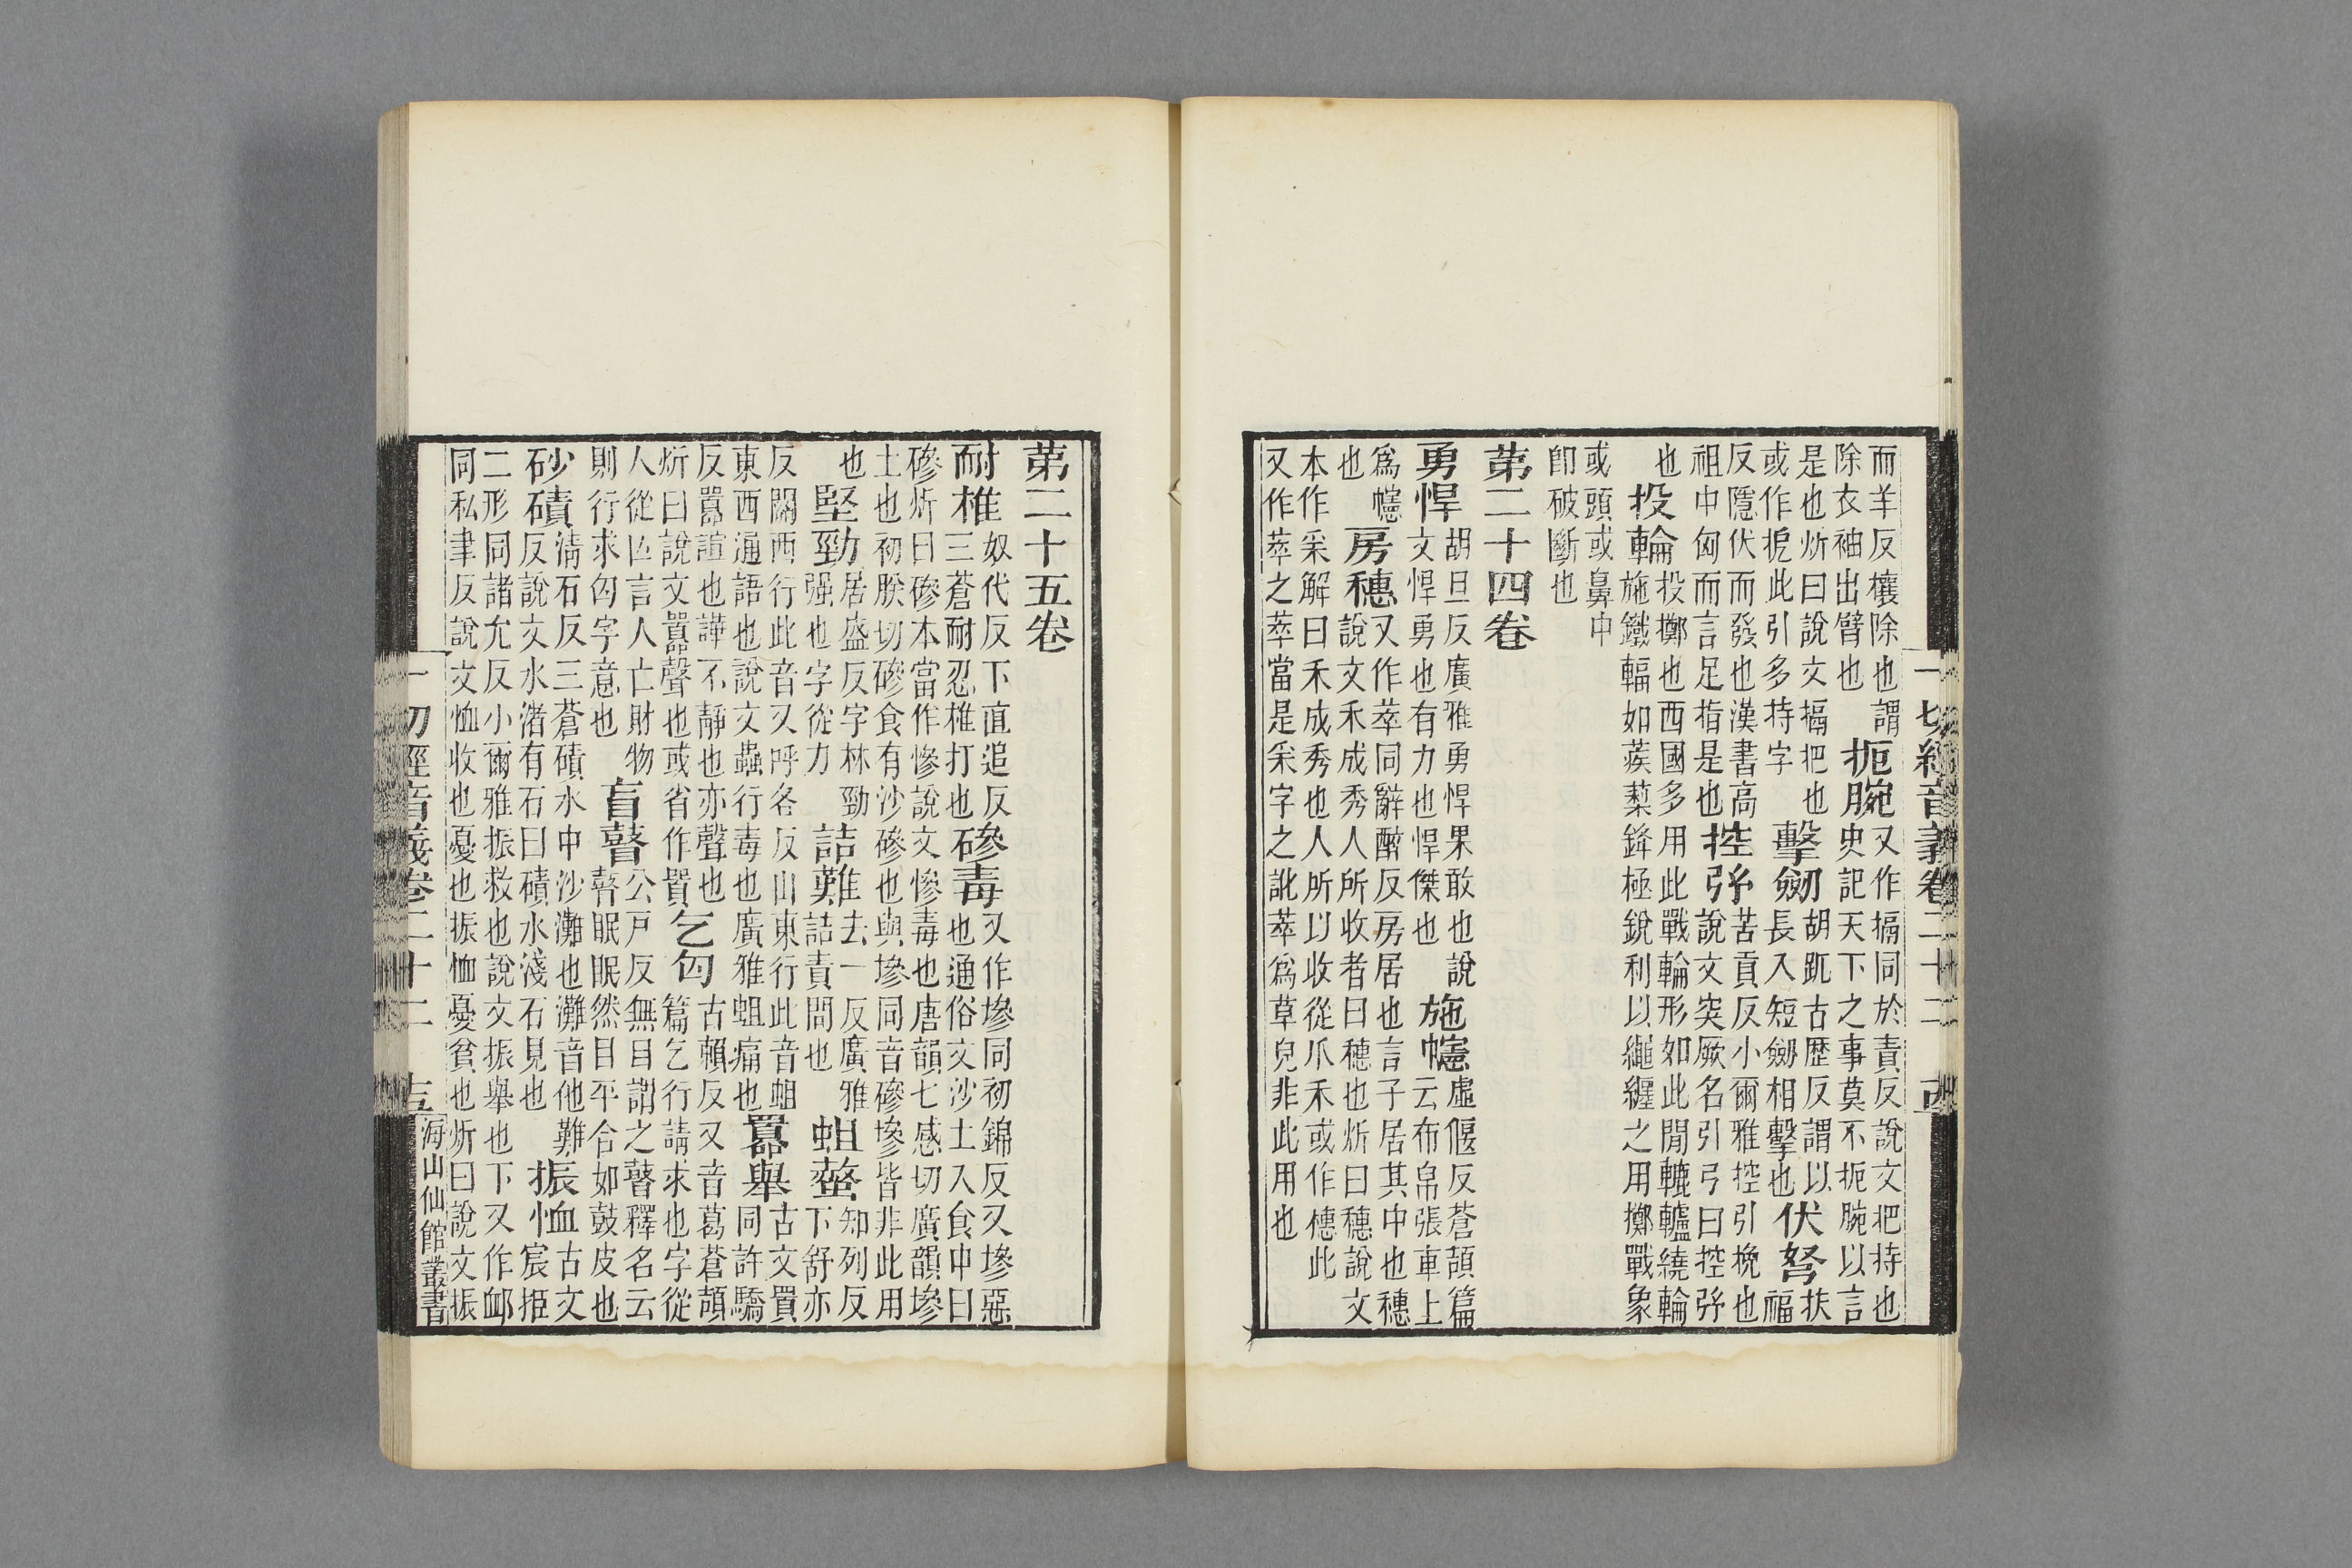 而羊反攘除也謂除衣袖出臂也扼腕又作搹同於責反說文把持也史記天下之事莫不扼腕以言
是也炘曰說文搹把也或作扼此引多持字擊劒胡瓧古歷反謂以長入短劒相擊也伏弩扶福
反隱伏而發也漢書高祖中匈而言足指是也控弥苦貢反小爾雅控引挽也說文突厥名引弓曰控弥
也投輪投擲也西國多用此戰輪形如此閒轆轤繞輪施鐵輻如蒺蔾鋒極銳利以繩纏之用擲戰象
或頭或鼻中卽破斷也
第二十四卷
勇悍胡旦反廣雅勇悍果敢也說文悍勇也有力也悍傑也施幰虛偃反蒼頡篇云布帛張車上
爲幰也房穗又作萃同辭醉反房居也言子居其中也穗說文禾成秀人所收者曰穗也炘曰穗說文
本作采解曰禾成秀也人所以收從爪禾或作穗此又作萃之萃當是采字之訛萃爲草皃非此用也
一切經音義卷二十二 西
第二十五卷
耐椎奴代反下直追反三蒼耐忍椎打也磣毒又作墋同初錦反又墋惡也通俗文沙土入食中曰
磣炘曰磣本當作慘說文慘毒也唐韻七感切廣韻墋土也初朕切磣食有沙磣也與墋同音磣墋皆非此用
也堅勁居盛反字林勁强也字從力詰難去一反廣雅詰責問也蛆螫知列反下舒亦
反關西行此音又呼各反山東行此音蛆東西通語也說文蟲行毒也廣雅蛆痛也囂舉古文買同許驕
反囂諠也譁不靜也亦聲也炘曰說文囂聲也或省作買乞匃古賴反又音葛蒼頡篇乞行請求也字從
人從亾言人亡財物則行求匃字意也盲瞽公戸反無目謂之瞽釋名云瞽眠眠然目平合如鼓皮也
砂磧淸石反三蒼磧水中沙灘也灘音他難反說文水渚有石曰磧水淺石見也振恤古文宸挋
二形同諸允反小爾雅振救也說文振舉也下又作卹同私聿反說文恤收也憂也振恤憂貧也炘曰說文振
一切經音義卷二十二 圭 海山仙館叢書